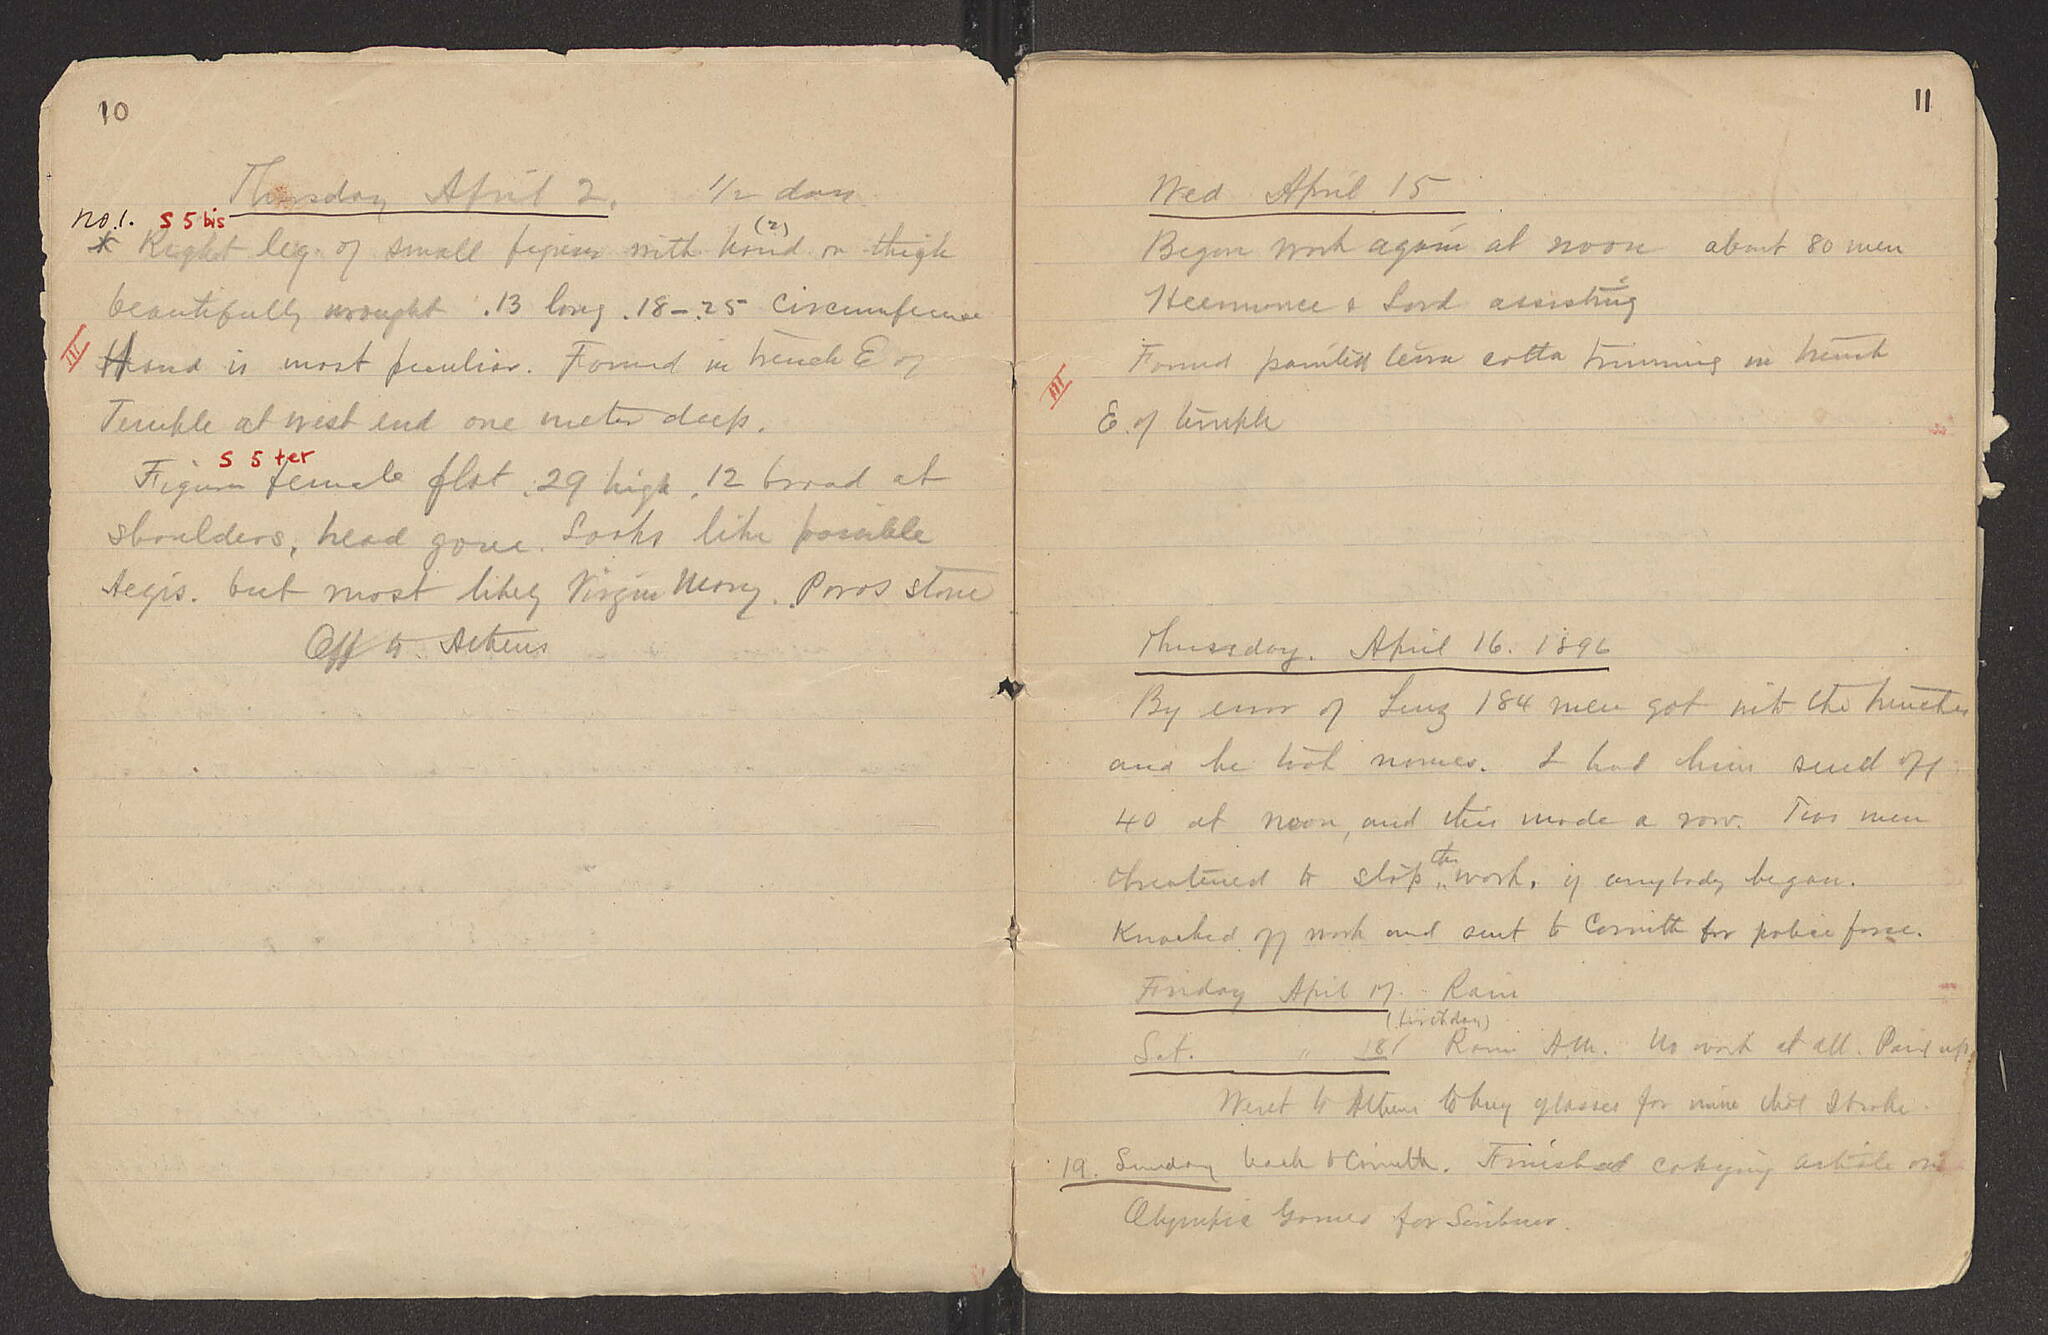 10
Thursday April 2. 1/2 day
No. 1. S 5 bis
(2)
* Right leg of small figure with hand on thigh
beautifully wrought .13 long .18-.25 circumference
III
Hand is most peculiar. Found in trench E of
Temple at west end one meter deep.
S 5 ter
Figure female flat .29 high .12 broad at
shoulders, head gone. Looks like possible
Aegis. but most likely Virgin Mary. Poros stone
Off to Athens
11
Wed April 15
Began work again at noon about 80 men
Heermance & Lord assisting
III
Found painted terra cotta trimming in trench
E. of temple
Thursday. April 16. 1896
By error of Linz 184 men got into the trenches
and he took names. I had him send off
40 at noon, and this made a row. Two men
threatened to stop the work, if anybody began.
Knocked off work and sent to Corinth for police force.
Friday April 17. Rain
(birthday)
Sat. " 18 Rain A.M. No work at all. Paid up
Went to Athens to buy glasses for mine that I broke.
19. Sunday back to Corinth. Finished copying article on
Olympic Games for Scribner.